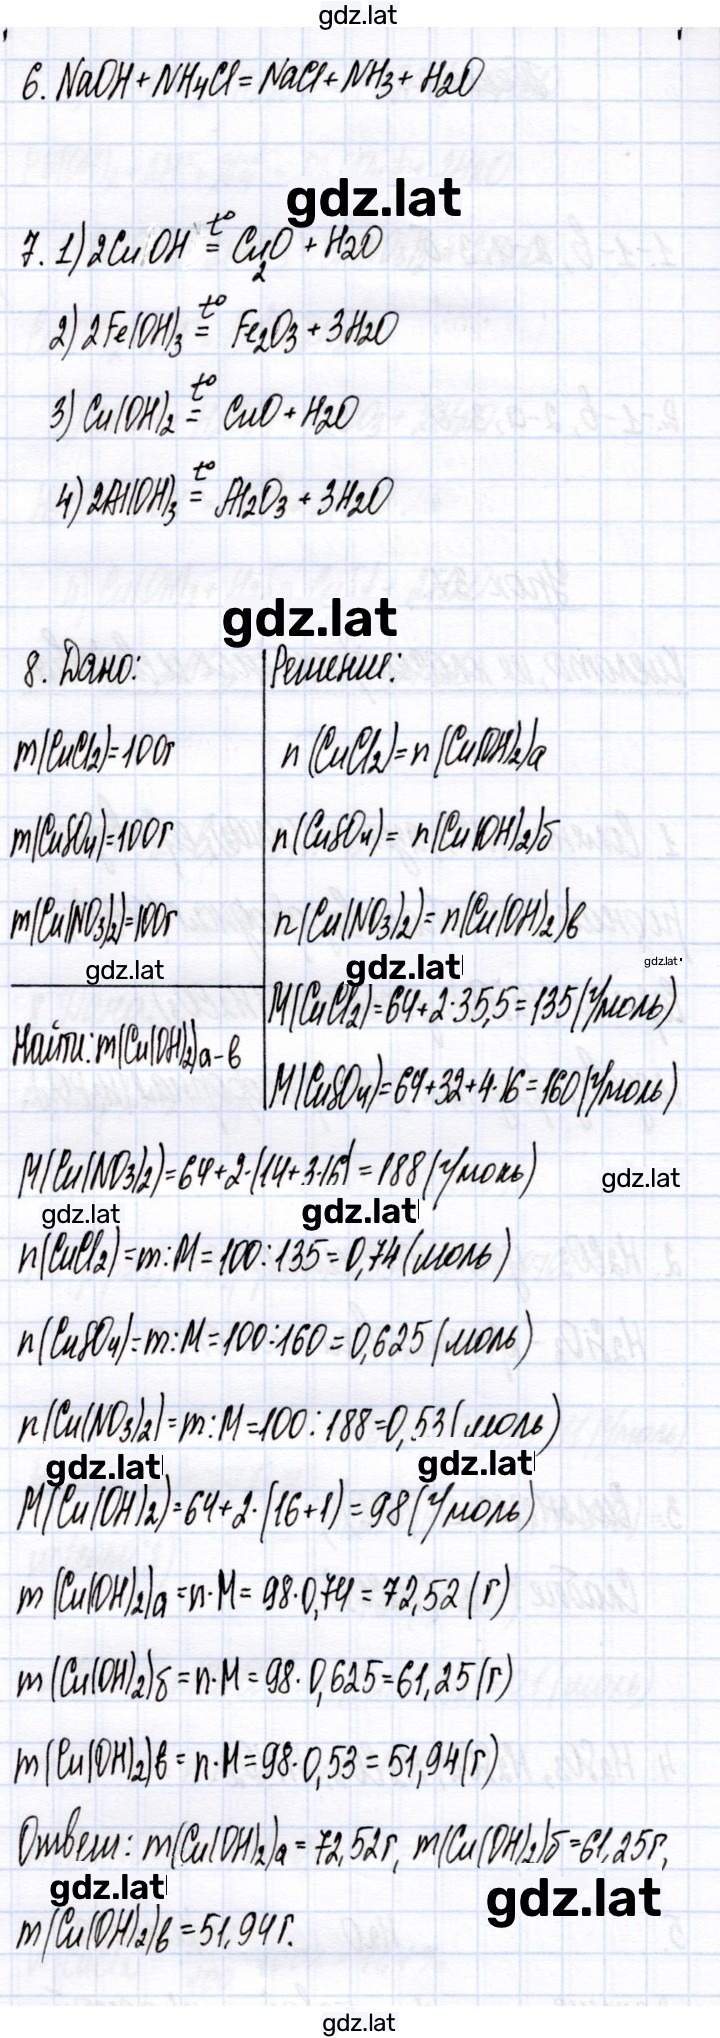 gdz.lat
6. NaOH + NH4Cl = NaCl + NH3 + H2O
gdz.lat
7. 1) 2CuOH =t° Cu2O + H2O
2) 2Fe(OH)3 =t° Fe2O3 + 3H2O
3) Cu(OH)2 =t° CuO + H2O
4) 2Al(OH)3 =t° Al2O3 + 3H2O
gdz.lat
8. Дано:
m(CuCl2)=100г
m(CuSO4)=100г
m(Cu(NO3)2)=100г
gdz.lat
Найти: m(Cu(OH)2)а-в
Решение:
n(CuCl2)=n(Cu(OH)2)а
n(CuSO4)=n(Cu(OH)2)б
n(Cu(NO3)2)=n(Cu(OH)2)в
gdz.lat
gdz.lat
M(CuCl2)=64+2·35,5=135(г/моль)
M(CuSO4)=64+32+4·16=160(г/моль)
M(Cu(NO3)2)=64+2·(14+3·16)=188(г/моль)
gdz.lat
gdz.lat
gdz.lat
n(CuCl2)=m:M=100:135=0,74(моль)
n(CuSO4)=m:M=100:160=0,625(моль)
n(Cu(NO3)2)=m:M=100:188=0,53(моль)
gdz.lat
gdz.lat
M(Cu(OH)2)=64+2·(16+1)=98(г/моль)
m(Cu(OH)2)а=n·M=98·0,74=72,52(г)
m(Cu(OH)2)б=n·M=98·0,625=61,25(г)
m(Cu(OH)2)в=n·M=98·0,53=51,94(г)
Ответ: m(Cu(OH)2)а=72,52г, m(Cu(OH)2)б=61,25г,
gdz.lat
gdz.lat
m(Cu(OH)2)в=51,94г.
gdz.lat